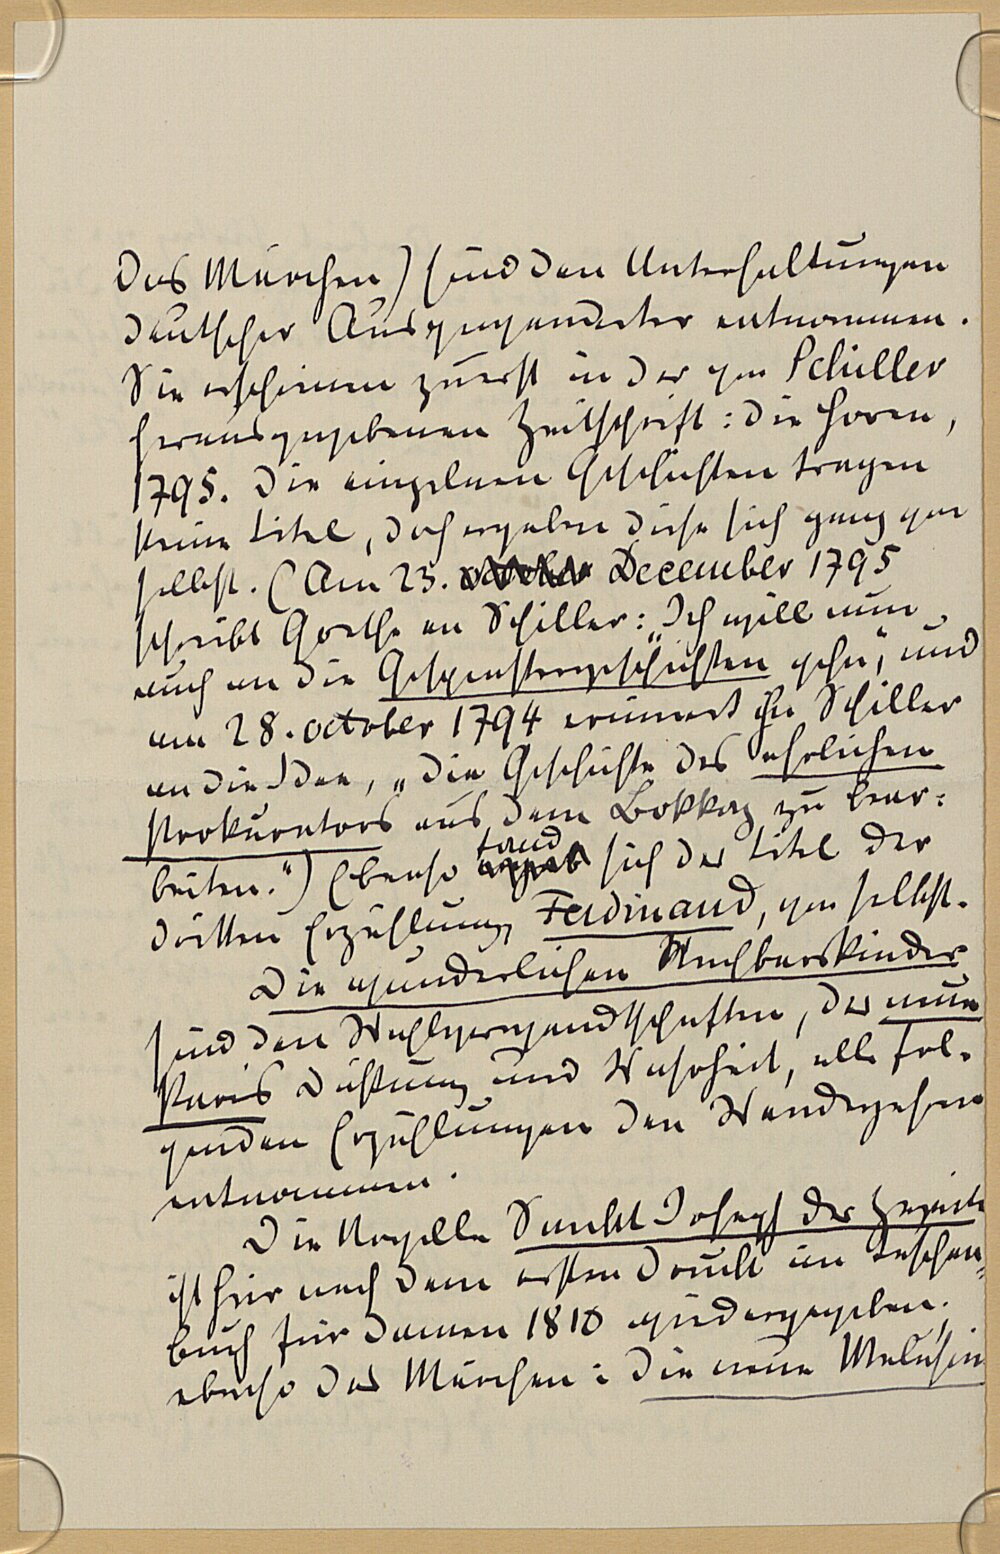 Das Märchen) sind den Unterhaltungen
deutscher Ausgewanderter entnommen.
Sie erschienen zuerst in der von Schiller
herausgegebenen Zeitschrift: Die Horen,
1795. Die einzelnen Geschichten tragen
keine Titel, doch ergeben diese sich ganz von
selbst. (Am 23. December 1795
schreibt Goethe an Schiller: „Ich will nun
auch an die Gespenstergeschichten gehn“, und
am 28. october 1794 erinnert ihn Schiller
an die Idee, „die Geschichte des ehrlichen
Prokurators aus dem Bokkaz zu bear:
beiten.“) Ebenso fand sich der Titel der
dritten Erzählung, Ferdinand, von selbst.
Die wunderlichen Nachbarskinder
sind den Wahlverwandtschaften, der neue
Paris Dichtung und Wahrheit, alle fol-
genden Erzählungen den Wanderjahren
entnommen.
Die Novelle Sankt Joseph der Zweite
ist hier nach dem ersten Druck im Taschen=
buch für Damen 1810 wiedergegeben,
ebenso das Märchen: die neue Melusin